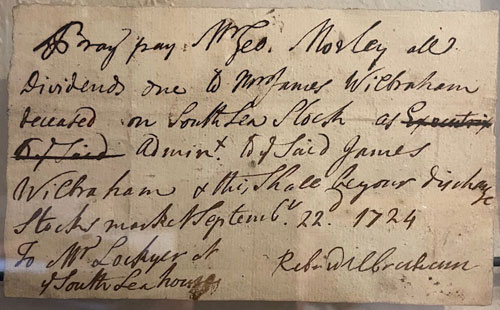 Pray pay Mr Geo. Morley all
Dividends due to Mr James Wilbraham
deceased on South Sea Stock as Executrix
to ye said Admint. to ye said James
Wilbraham & this Shall be your discharge
Stocks market Septembr. 22d. 1724
To Mr Lockyer at
ye South Sea house
Reb: Wilbraham